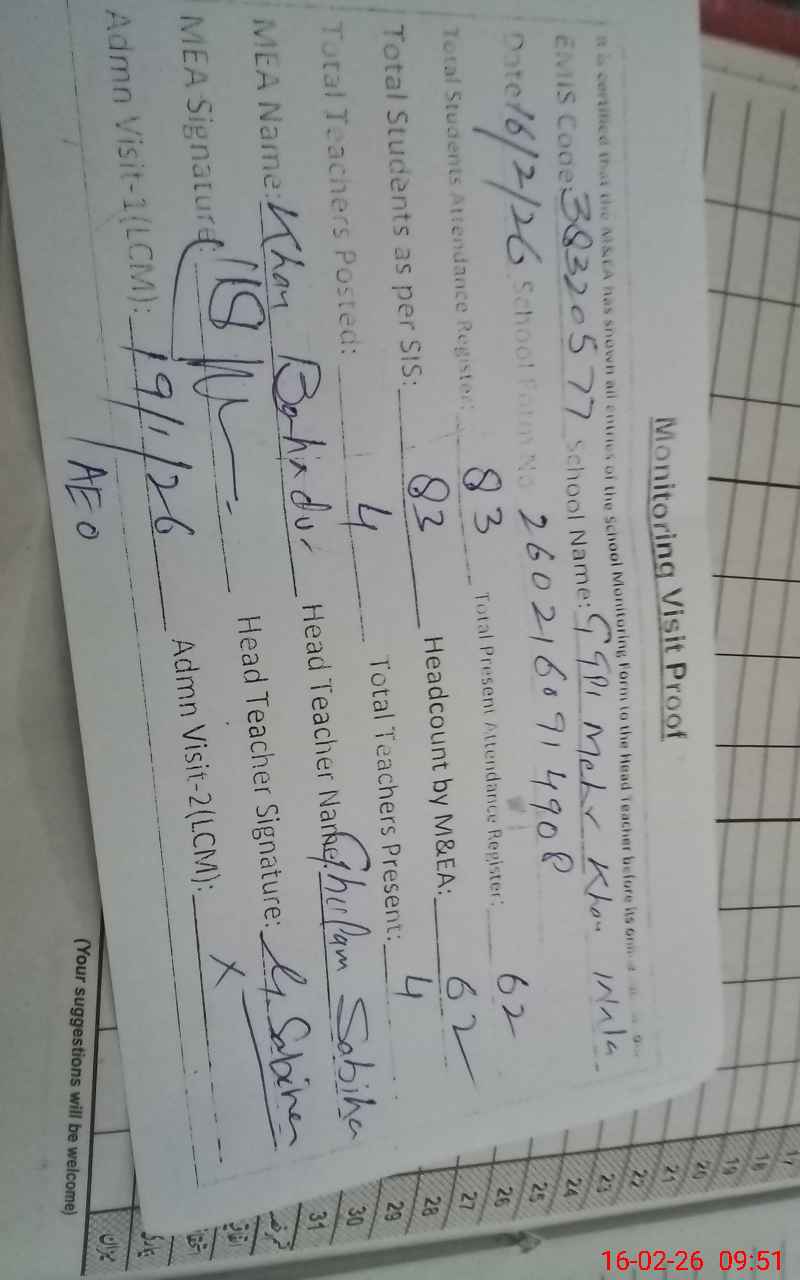 Monitoring Visit Proof
It is certified that the M&EA has shown all entries of the School Monitoring Form to the Head Teacher before its
EMIS Code: 38320577 School Name: GGPS Mehr Khan
Date 16/2/26 School Form No 2602160914908
Total Students Attendance Register: 83 Total Present Attendance Register: 62
Total Students as per SIS: 83 Headcount by M&EA: 62
Total Teachers Posted: 4 Total Teachers Present: 4
MEA Name: Khan Bahadur Head Teacher Name: Ghulam Sabiha
MEA Signature: Head Teacher Signature: G Sabiha
Admn Visit-1(LCM): 19/1/26 Admn Visit-2(LCM): X
AEO
17
18
19
20
21
22
23
24
25
26
27
28
29
30
31
(Your suggestions will be welcome)
16-02-26 09:51